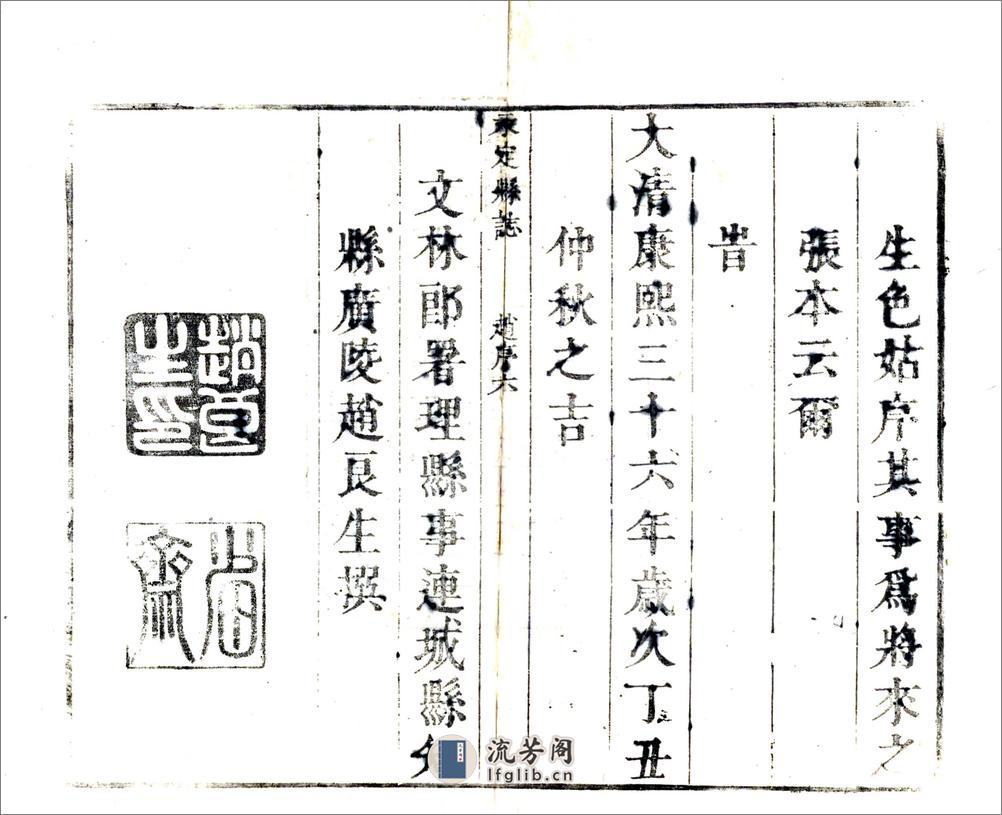 生色姑序其事爲將來之
張本云爾
旹
大清康熙三十六年歲次丁丑
仲秋之吉
永定縣誌 趙序六
文林郎署理縣事連城縣
縣廣陵趙良生撰
趙良生印
流芳阁
lfglib.cn